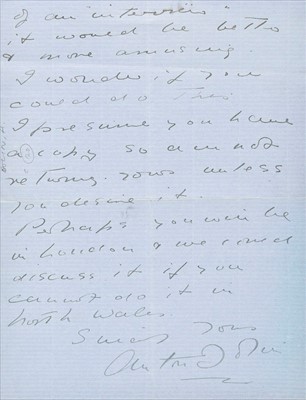 of an "interview"
it would be better
& more amusing.
I wonder if you
could do this
I presume you have
a copy so am not
returning yours unless
you desire it.
Perhaps you will be
in London & we could
discuss it if you
cannot do it in
North Wales.
Yours
Anton Dolin